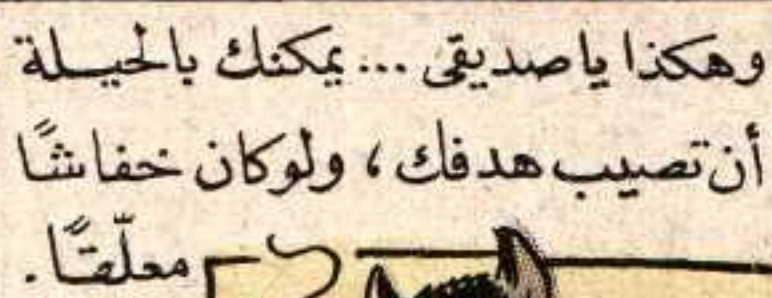 وهكذا يا صديقى ... يمكنك بالحيلة
أن تصيب هدفك ، ولو كان خفاشًا
معلّقًا .